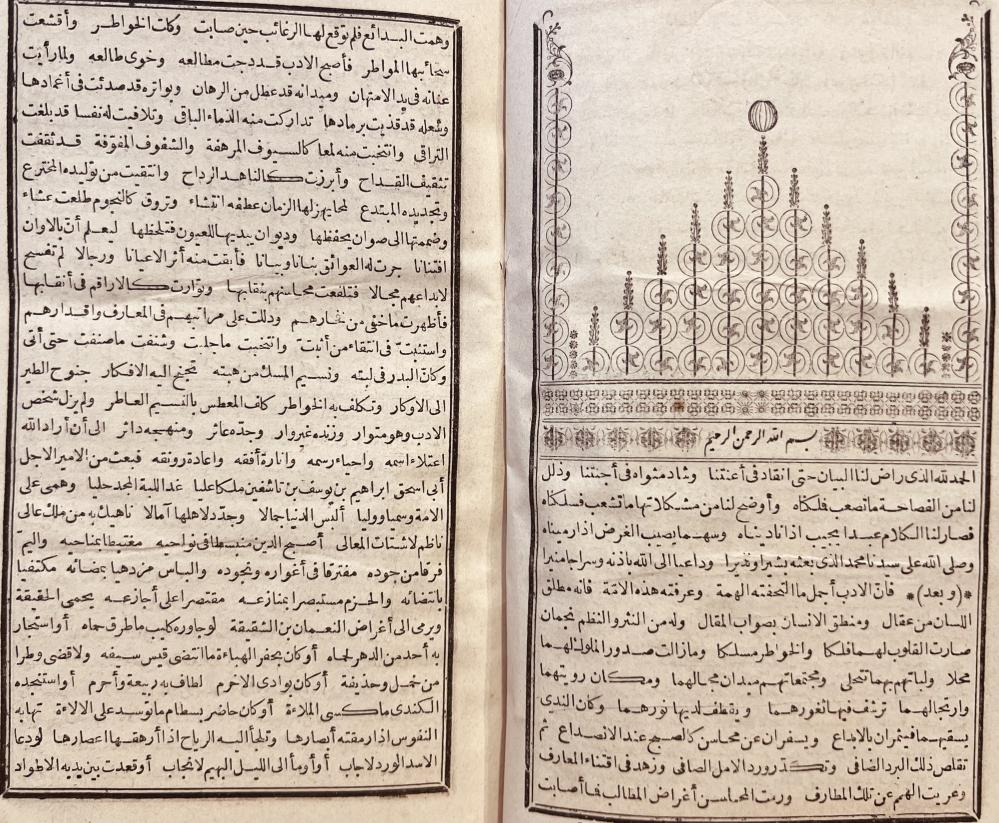 بسم الله الرحمن الرحيم
الحمد لله الذى راض لنا البيان حتى انقاد فى أعنتنا وشاد مثواه فى أجنتنا وذلل
لنا من الفصاحة ما تصعب فلكناه وأوضح لنا من مشكلاتها ما تشعب فسلكناه
فصار لنا الكلام عبدا يجيب اذا نادىناه وسهما يصيب الغرض اذا رميناه
وصلى الله على سيدنا محمد الذى بعثه بشيرا ونذيرا وداعيا الى الله باذنه وسراجا منيرا
*(وبعد)* فانّ الادب أجمل ما التحفته الهمة وعرفته هذه الامّة فانه مطلق
اللسان من عقال ومنطق الانسان بصواب المقال وله من النثر والنظم نجمان
صارت القلوب لهما فلكا والخواطر مسلكا وما زالت صدور الملوك لهما
محلا ولباتهم بهما تتحلى ومجتمعاتهم ميدان مجالهما ومكان رويتهما
وارتجالهما ترشف فيها ثغورهما ويقطف لديها نورهما وكان الندى
يسقيهما فيثمران بالابداع ويسفران عن محاسن كالصبح عند الانصداع ثم
تقلص ذلك البرد الضافى وتكدّر ورد الامل الصافى وزهد فى اقتناء المعارف
وعريت الهمم عن تلك المطارف ورمت المحاسن أغراض المطالب فما أصابت
وهمت البدائع فلم توقع لها الرغائب حين صابت وكلت الخواطر وأقشعت
سحائبها المواطر فأصبح الادب قد دجت مطالعه وخوى طالعه ولما رأيت
عنانه فى يد الامتهان وميدانه قد عطل من الرهان وبواتره قد صدئت فى أغمادها
وشعله قد قذيت برمادها تداركت منه الذماء الباقى وتلافيت له نفسا قد بلغت
التراقى وانتخبت منه لمعا كالسيوف المرهفة والشفوف المفوّفة قد ثقفت
تثقيف القداح وأبرزت كالناهد الرداح وانتقيت من توليده المخترع
وتجديده المبتدع لمحا يهز لها الزمان عطفه انتشاء وتروق كالنجوم طلعت عشاء
وضممتها الى صوان يحفظها وديوان يبديها للعيون فتلحظها ليعلم أنّ بالاوان
افتنانا جرت له العوائق بنانا وبيانا فأبقت منه أثر الاعيانا ورجالا لم تفسح
لابداعهم مجالا فتلفعت محاسنهم بنقابها وتوارت كالاراقم فى أنقابها
فأظهرت ما خفى من فخارهم ودللت على مراتبهم فى المعارف وأقدارهم
واستثبتّ فى انتقاء من أثبت وانتخبت ما جلبت وشنفت ما صنفت حتى أتى
وكانّ البدر فى لبته ونسيم المسك من هبته تجنح اليه الافكار جنوح الطير
الى الاوكار وتكلف به الخواطر كلف المعطس بالنسيم العاطر ولم يزل شخص
الادب وهو متوار وزنده غير وار وجدّه عاثر ومنهجه داثر الى أن أراد الله
اعتلاء اسمه واحياء رسمه وانارة أفقه واعادة رونقه فبعث من الامير الاجل
أبى اسحق ابراهيم بن يوسف بن تاشفين ملكا عليا غدا للبة المجد حليا وهمى على
الامة وسميا ووليا ألبس الدنيا جمالا وجدّد لاهلها آمالا ناهيك به من ملك عالى
ناظم لاشتات المعالى أصبح الدين منبسطا فى نواحيه مغتبطا بمناحيه واليم
فرقا من جوده مفترقا فى أغواره ونجوده والباس مزدهيا بمضائه مكتفيا
بانتضائه والحزم مستبصرا بمنازعه مقتصرا على أجازعه يحمى الحقيقة
ويرمى الى أغراض النعمان بن الشقيقة لو جاوره كليب ما طرق حماه أو استجار
به أحد من الدهر لحماه أو كان بجفر الهباءة ما انتضى قيس سيفه ولا قضى وطرا
من حمل وحذيفة أو كان بوادى الاخرم لطاف به ربيعة وأحرم أو استنجده
الكندى ما كسى الملاءة أو كان حاضر بسطام ما توسد على الالاءة تهابه
النفوس اذا رمقته أبصارها وتلجأ اليه الرياح اذا أرهقها اعصارها لو دعا
الاسد الورد لاجاب أو أومأ الى الليل البهيم لانجاب أو قعدت بين يديه الاطواد